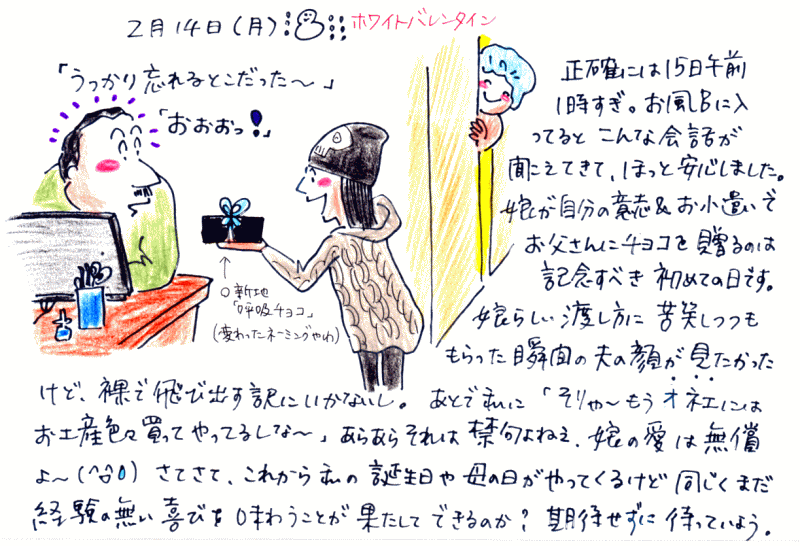 2月14日(月) ホワイトバレンタイン
「うっかり忘れるとこだった〜」
「おおおっ!」
正確には15日午前
1時すぎ。お風呂に入
ってると こんな会話が
聞こえてきて、ほっと安心しました。
娘が自分の意志&お小遣いで
お父さんにチョコを贈るのは
記念すべき初めての日です。
娘らしい渡し方に苦笑しつつも
もらった瞬間の夫の顔が見たかった
けど、裸で飛び出す訳にいかないし。あとで私に「そりゃ〜もうオネエには
お土産色々買ってやってるしな〜」あらあらそれは禁句よねえ、娘の愛は無償
よ〜(^^;) さてさて、これから私の誕生日や母の日がやってくるけど同じくまだ
経験の無い喜びを味わうことが果たしてできるのか?期待せずに待っていよう。
↑
○新地
「呼吸チョコ」
(変わったネーミングやわ)